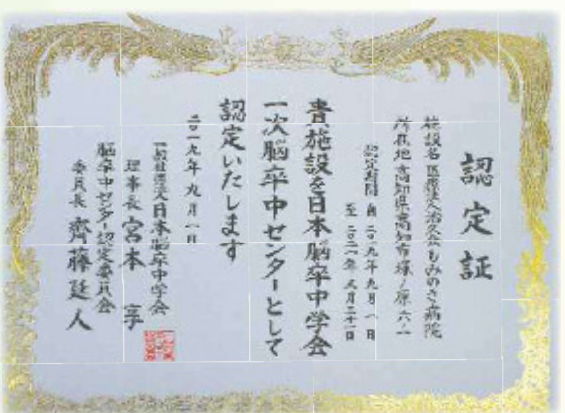 認定証
施設名 医療法人治久会もみのき病院
所在地 高知県高知市塚ノ原六ノ一
認定期間 自 二〇一九年 九月 一日
至 二〇二一年 三月三十一日
貴施設を日本脳卒中学会
一次脳卒中センターとして
認定いたします
二〇一九年 九月一日
一般社団法人日本脳卒中学会
理事長 宮本 享
脳卒中センター認定委員会
委員長 齊藤延人